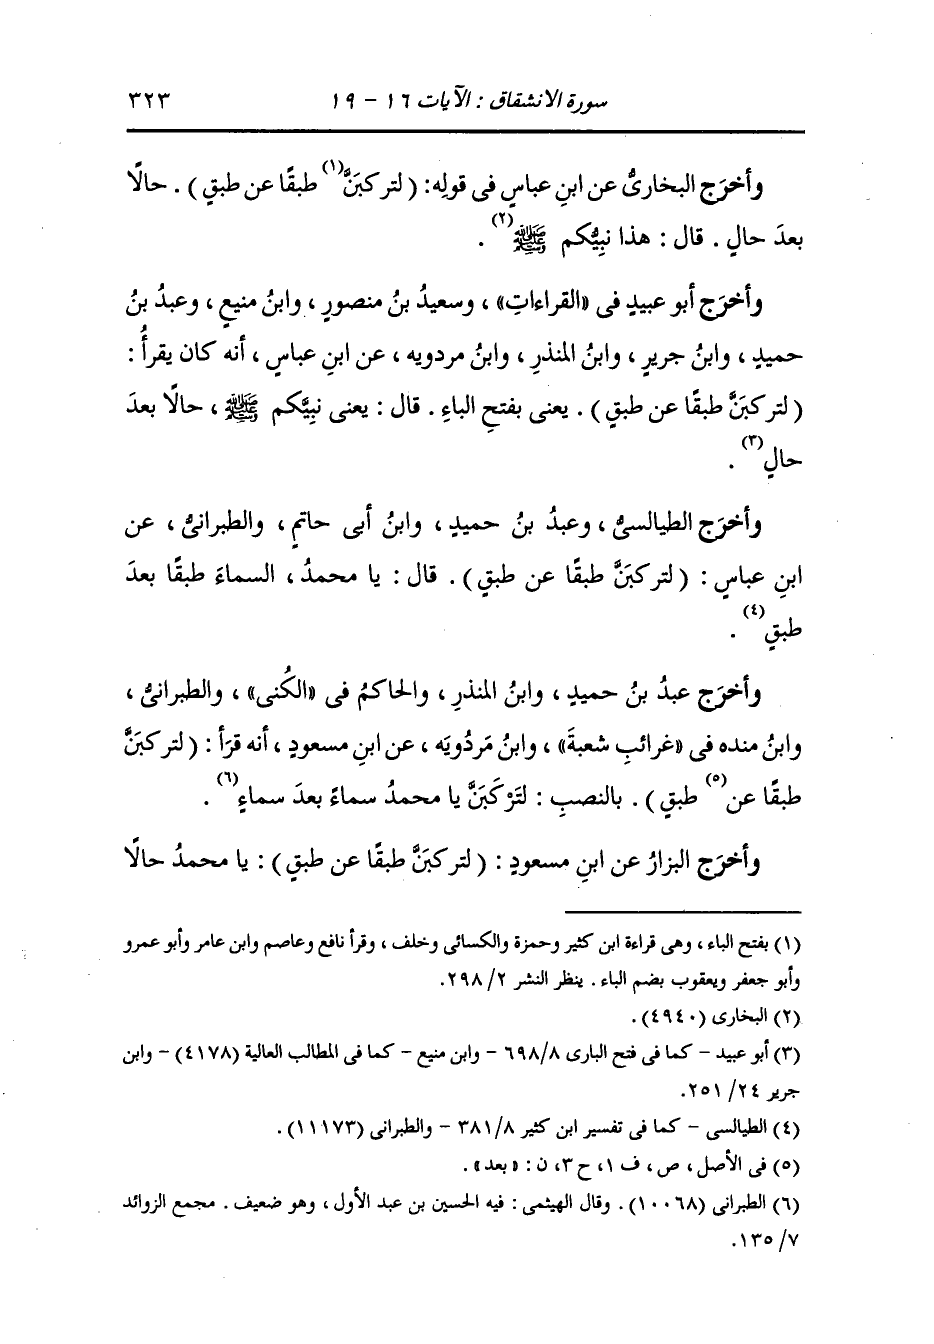 سورة الانشقاق : الآيات ١٦ - ١٩ ٣٢٣
وأخرَج البخارىُّ عن ابنِ عباسٍ فى قولِه: ( لتركبَنَّ(١) طبقًا عن طبقٍ ) . حالًا
بعدَ حالٍ . قال : هذا نبيُّكم ﷺ(٢) .
وأخرَج أبو عبيدٍ فى «القراءاتِ» ، وسعيدُ بنُ منصورٍ ، وابنُ منيعٍ ، وعبدُ بنُ
حميدٍ ، وابنُ جريرٍ ، وابنُ المنذرِ ، وابنُ مردويه ، عن ابنِ عباسٍ ، أنه كان يقرأُ :
( لتركبَنَّ طبقًا عن طبقٍ ) . يعنى بفتحِ الباءِ . قال : يعنى نبيَّكم ﷺ ، حالًا بعدَ
حالٍ(٣) .
وأخرَج الطيالسىُّ ، وعبدُ بنُ حميدٍ ، وابنُ أبى حاتمٍ ، والطبرانىُّ ، عن
ابنِ عباسٍ : ( لتركبَنَّ طبقًا عن طبقٍ ) . قال : يا محمدُ ، السماءَ طبقًا بعدَ
طبقٍ(٤) .
وأخرَج عبدُ بنُ حميدٍ ، وابنُ المنذرِ ، والحاكمُ فى «الكُنى» ، والطبرانىُّ ،
وابنُ منده فى «غرائبِ شعبةَ» ، وابنُ مَردُويَه ، عن ابنِ مسعودٍ ، أنه قرَأ : ( لتركبَنَّ
طبقًا عن(٥) طبقٍ ) . بالنصبِ : لتَرْكَبَنَّ يا محمدُ سماءً بعدَ سماءٍ(٦) .
وأخرَج البزارُ عن ابنِ مسعودٍ : ( لتركبَنَّ طبقًا عن طبقٍ ) : يا محمدُ حالًا
(١) بفتح الباء ، وهى قراءة ابن كثير وحمزة والكسائى وخلف ، وقرأ نافع وعاصم وابن عامر وأبو عمرو
وأبو جعفر ويعقوب بضم الباء . ينظر النشر ٢/ ٢٩٨.
(٢) البخارى (٤٩٤٠).
(٣) أبو عبيد - كما فى فتح البارى ٦٩٨/٨ - وابن منيع - كما فى المطالب العالية (٤١٧٨) - وابن
جرير ٢٤/ ٢٥١.
(٤) الطيالسى - كما فى تفسير ابن كثير ٣٨١/٨ - والطبرانى (١١١٧٣) .
(٥) فى الأصل ، ص ، ف ١، ح ٣، ن : « بعد » .
(٦) الطبرانى (١٠٠٦٨) . وقال الهيثمى : فيه الحسين بن عبد الأول ، وهو ضعيف . مجمع الزوائد
٧/ ١٣٥.